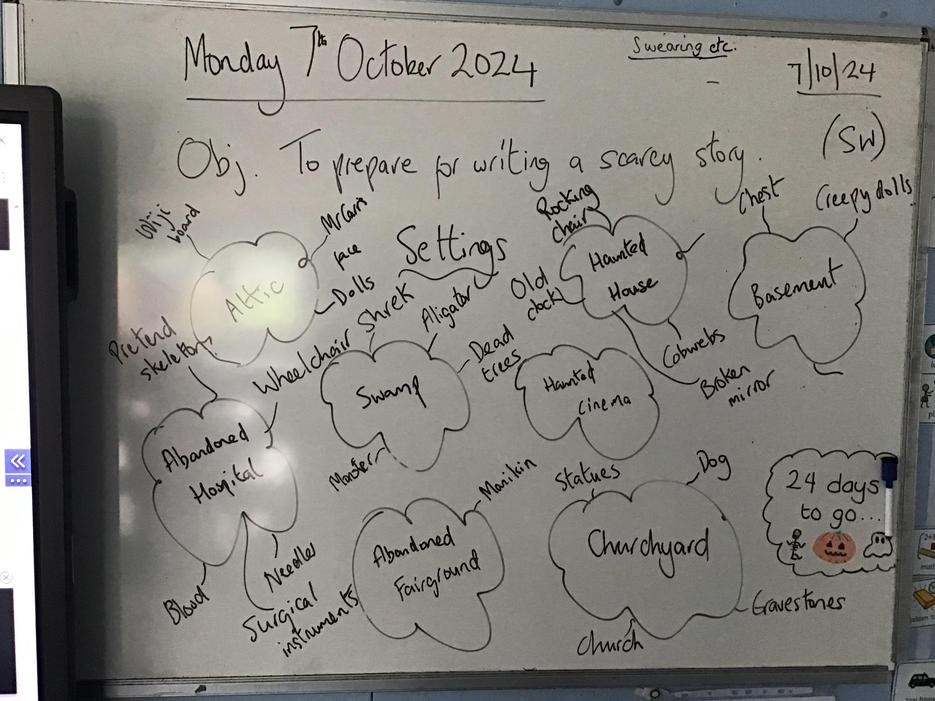 Swearing etc.
Monday 7th October 2024
7/10/24
Obj. To prepare for writing a scarey story.
(SW)
Settings
Wiji
board
Attic
Dolls
Pretend
skeleton
Rocking
chair
Haunted
House
Old
clock
Cobwebs
Broken
mirror
Chest
Creepy dolls
Basement
Wheelchair
Abandoned
Hospital
Blood
Needles
Surgical
instruments
Shrek
Aligator
Swamp
Dead
trees
Monster
Haunted
Cinema
Manikin
Abandoned
Fairground
Statues
Dog
Churchyard
Gravestones
Church
24 days
to go...